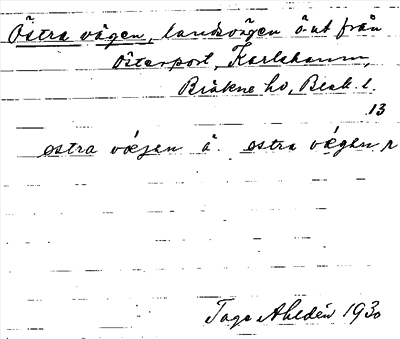 Östra vägen, landsvägen ö-ut från
Österport, Karlshamn,
Bräkne hd, Blek. l.
13
ostra väjen å. ostra vägen
Tage Ahldén 1930